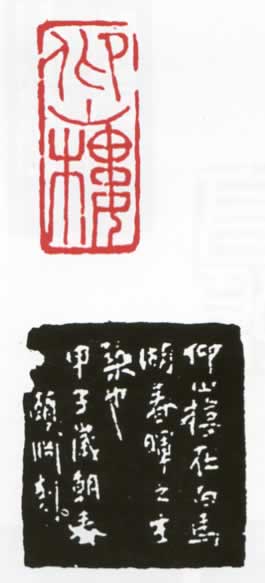 仰山樓
仰山樓在白馬
湖春暉之主
築也
甲子歲朝春
刻